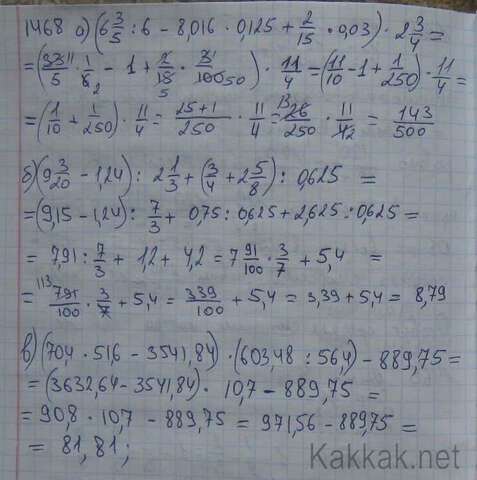 1468 а) (6 3/5 : 6 - 8,016 · 0,125 + 2/15 · 0,03) · 2 3/4 =
= (33 11/5 · 1/6 2 - 1 + 2/15 5 · 3/100 50) · 11/4 = (11/10 - 1 + 1/250) · 11/4 =
= (1/10 + 1/250) · 11/4 = 25+1/250 · 11/4 = 13 26/250 · 11/4 2 = 143/500
б) (9 3/20 - 1,24) : 2 1/3 + (3/4 + 2 5/8) : 0,625 =
= (9,15 - 1,24) : 7/3 + 0,75 : 0,625 + 2,625 : 0,625 =
= 7,91 : 7/3 + 1,2 + 4,2 = 7 91/100 · 3/7 + 5,4 =
= 113 791/100 · 3/7 + 5,4 = 339/100 + 5,4 = 3,39 + 5,4 = 8,79
в) (70,4 · 51,6 - 3541,84) · (603,48 : 56,4) - 889,75 =
= (3632,64 - 3541,84) · 10,7 - 889,75 =
= 90,8 · 10,7 - 889,75 = 971,56 - 889,75 =
= 81,81;
Kakkak.net